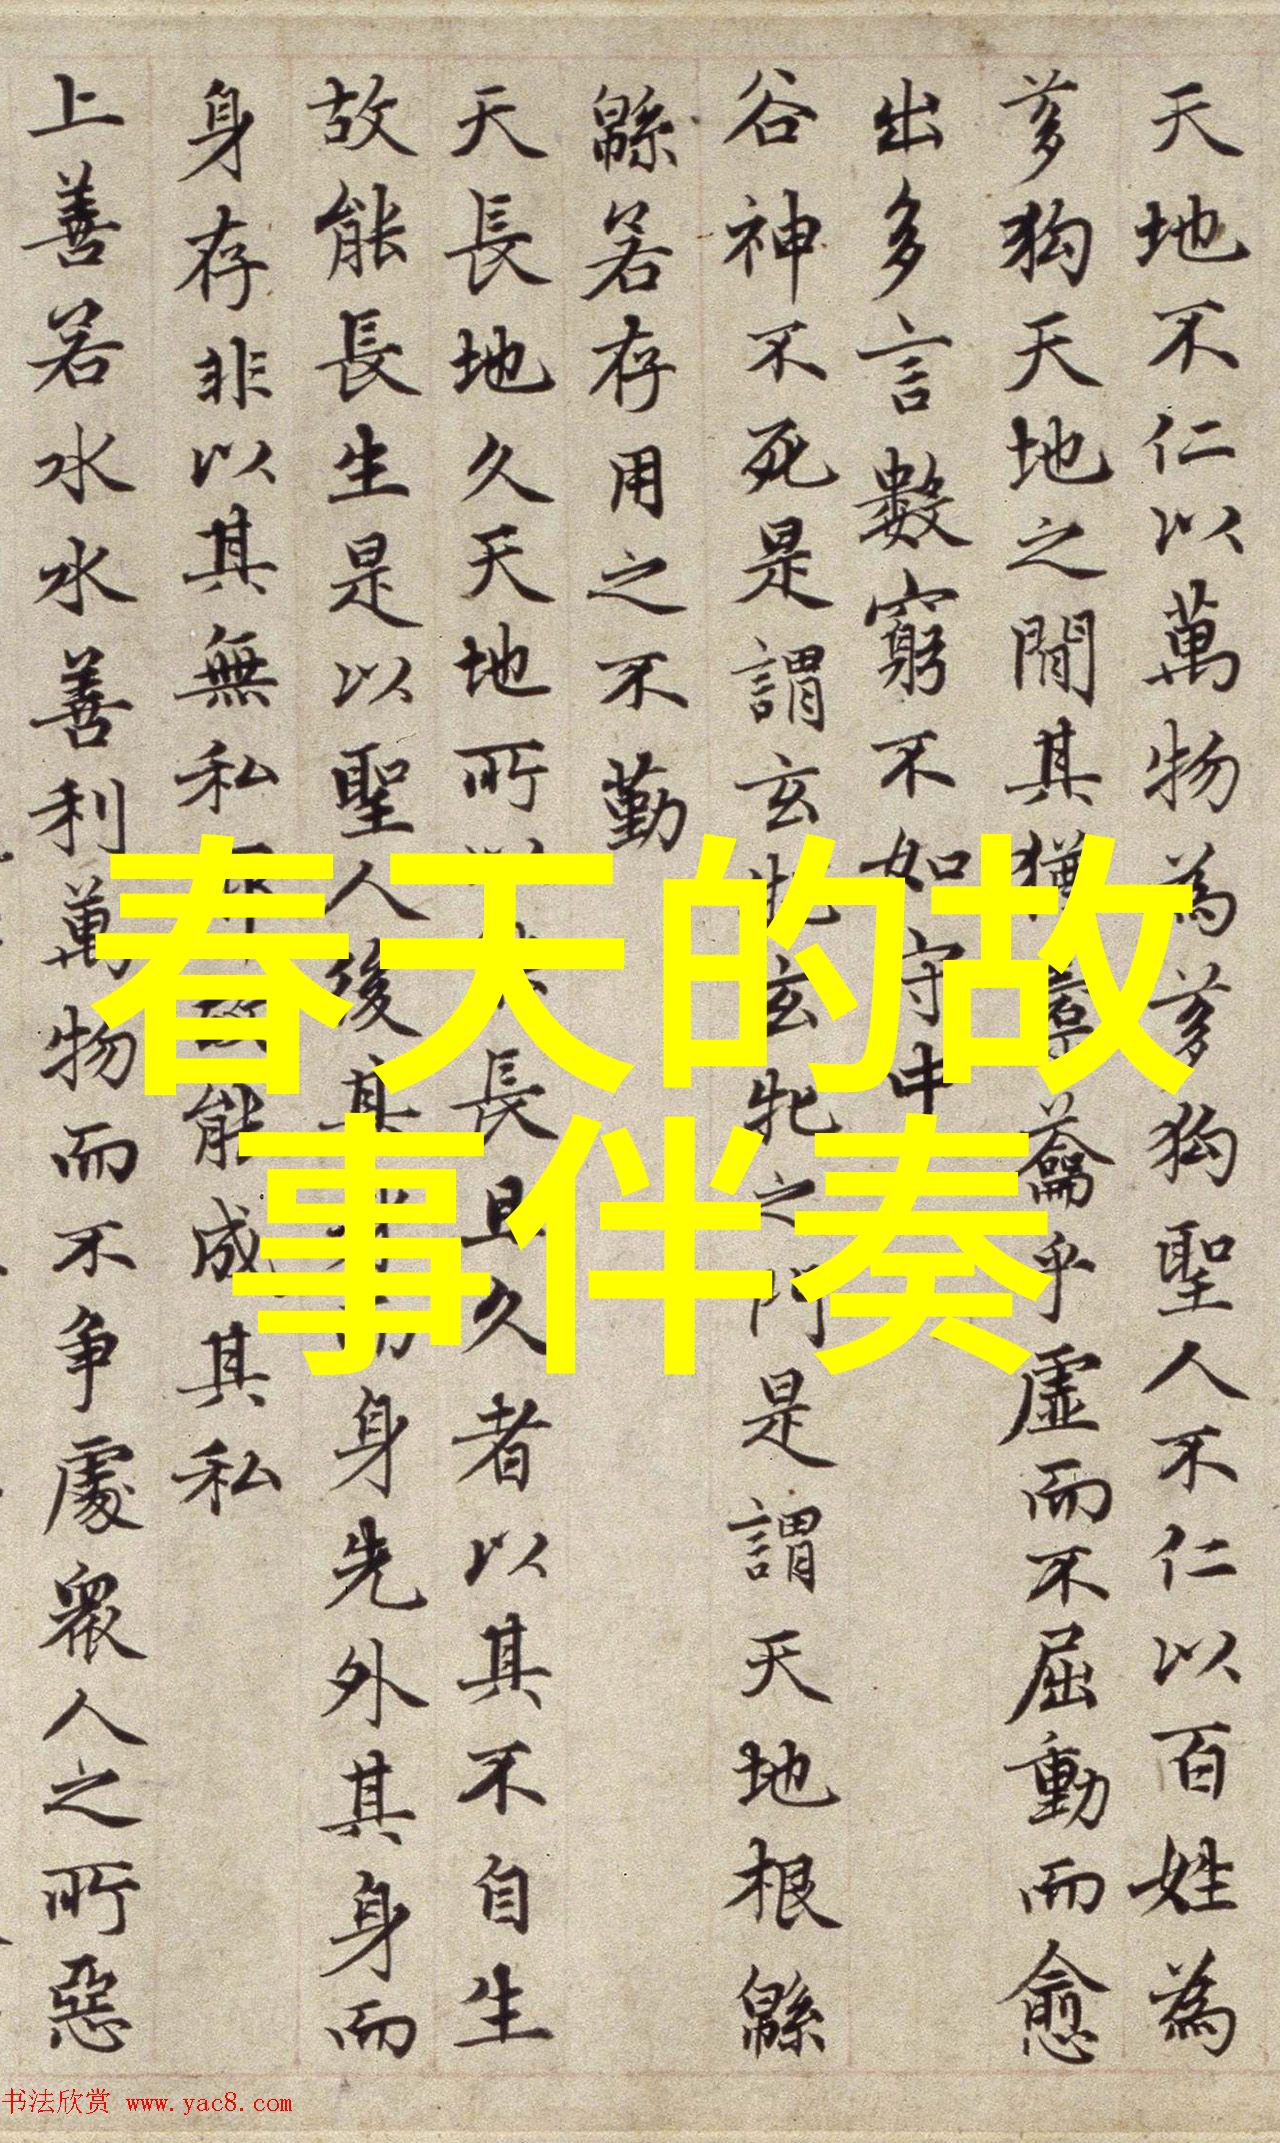 天地不仁以萬物為芻狗聖人不仁以百姓為
芻狗天地之間其猶橐籥乎虛而不屈動而愈
出多言數窮不如守中
谷神不死是謂玄牝玄牝之門是謂天地根緜
緜若存用之不勤
天長地久天地所以能長且久者以其不自生
故能長生是以聖人後其身而身先外其身而
身存非以其無私耶故能成其私
上善若水水善利萬物而不争處衆人之所惡
春天的故
事伴奏
书法欣赏 www.yac8.com